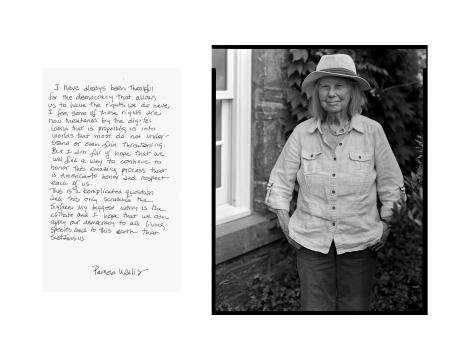 I have always been thankful
for the democracy that allows
us to have the rights we do have.
I feel some of those rights are
now threatened by the digital
world that is propelling us into
worlds that most do not under-
stand or even find threatening.
But I am full of hope that we
will find a way to continue to
honor this amazing process that
is america to honor and respect
each of us.
This is a complicated question
and this only scratches the
surface. My biggest worry is the
climate and I hope that we can
apply our democracy to all living
species and to this earth that
sustains us.
Pamela